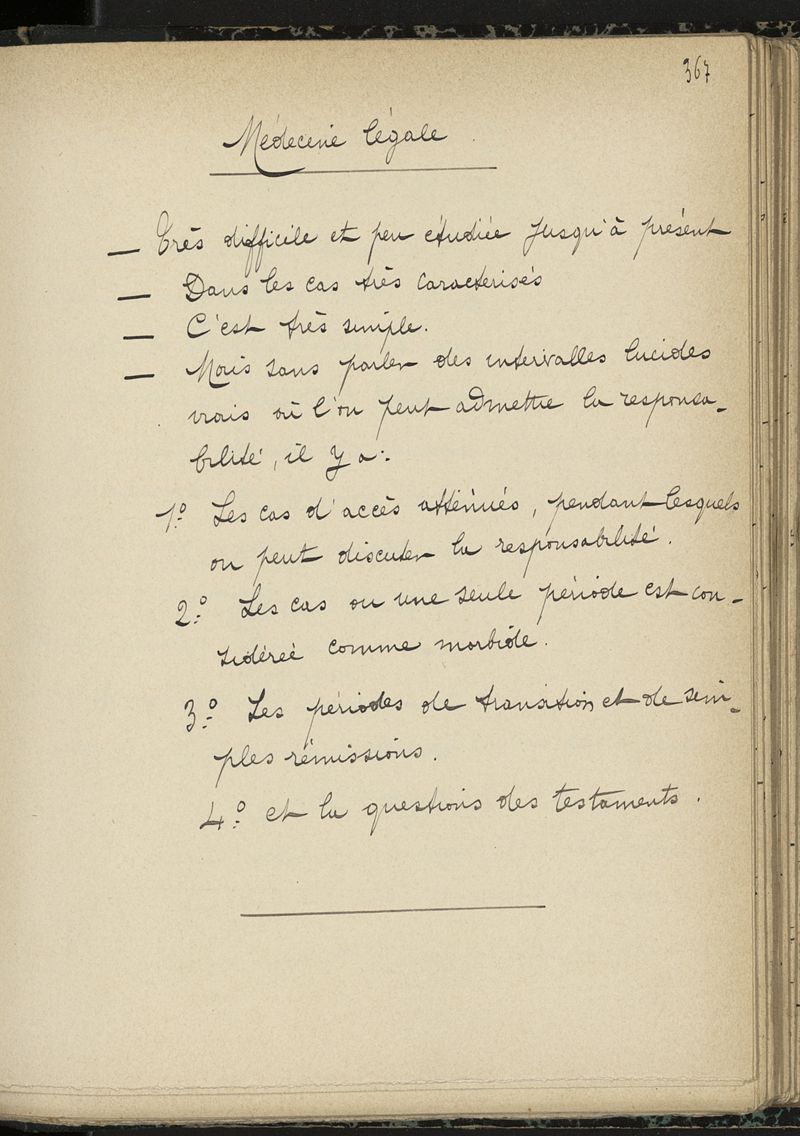 367
Médecine légale
— Très difficile et peu étudiée jusqu'à présent
— Dans les cas très caractérisés
— C'est très simple.
— Mais sans parler des intervalles lucides
vrais où l'on peut admettre la responsa-
bilité, il y a:
1.º Les cas d'accès atténués, pendant lesquels
on peut discuter la responsabilité.
2.º Les cas ou une seule période est con-
sidéreé comme morbide.
3.º Les périodes de transition et de sim-
ples rémissions.
4.º et la questions des testaments.